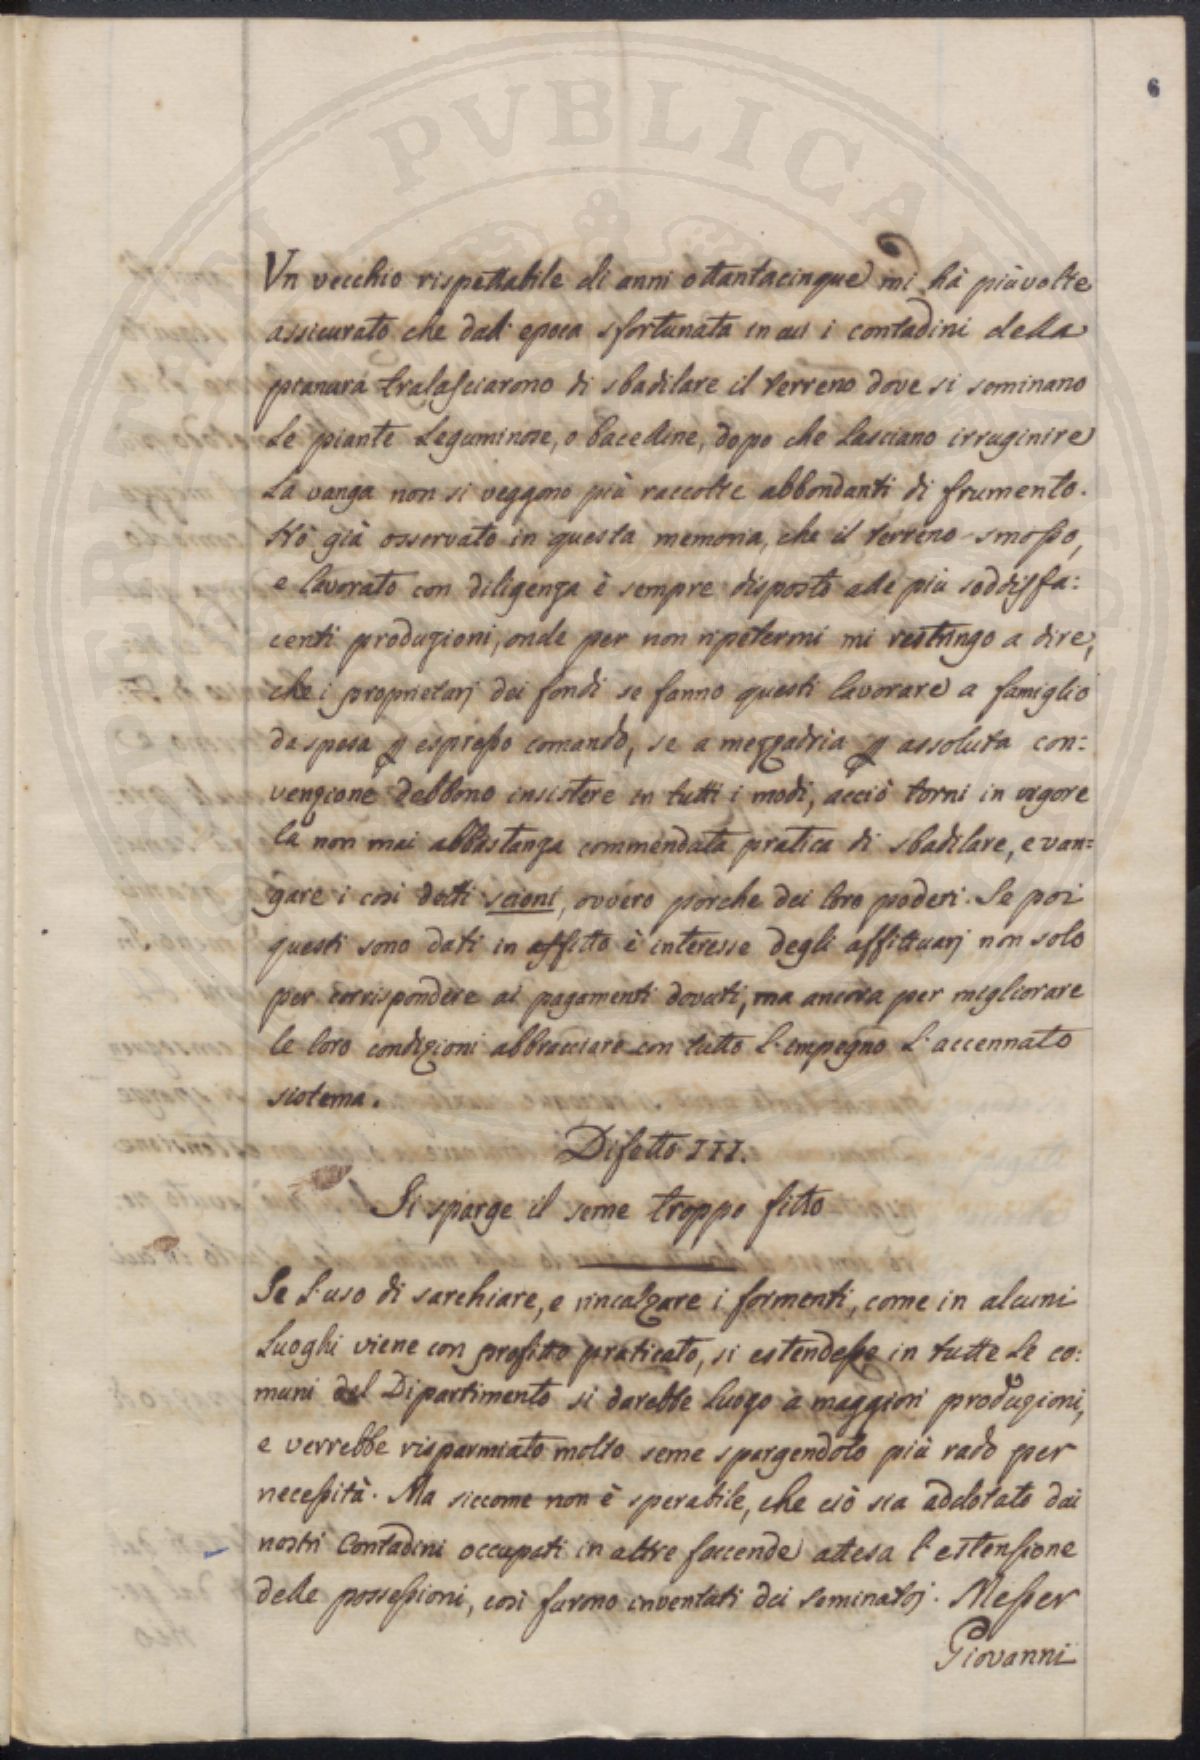 6
Un vecchio rispettabile di anni ottantacinque mi hà piùvolte
assicurato che dall'epoca sfortunata in cui i contadini della
pianura tralasciarono di sbadilare il terreno dove si seminano
le piante leguminose, o bacelline, dopo che lasciano irruginire
la vanga non si veggono più raccolte abbondanti di frumento.
Hò già osservato in questa memoria, che il terreno smosso,
e lavorato con diligenza è sempre disposto alle più soddisfa:
centi produzioni, onde per non ripetermi mi restringo a dire,
che i proprietarj dei fondi se fanno questi lavorare a famiglio
da spesa ꝑ espresso comando, se a mezzadria ꝑ assoluta con:
venzione debbono insistere in tutti i modi, acciò torni in vigore
la non mai abbastanza commendata pratica di sbadilare, e van=
gare i così detti scioni, ovvero porche dei loro poderi. Se poi
questi sono dati in affitto è interesse degli affittuarj non solo
per corrispondere ai pagamenti dovuti, ma ancora per migliorare
le loro condizioni abbracciare con tutto l'empegno l'accennato
sistema.
Difetto III.
Si sparge il seme troppo fitto
Se l'uso di sarchiare, e rincalzare i formenti, come in alcuni
luoghi viene con profitto praticato, si estendesse in tutte le co:
muni del Dipartimento si darebbe luogo a maggiori produzioni,
e verrebbe risparmiato molto seme spargendolo più rado per
necessità. Ma siccome non è sperabile, che ciò sia addotato dai
nostri Contadini occupati in altre faccende attesa l'estensione
delle possessioni, così furono inventati dei seminatoj. Messer
Giovanni
PERTATI PVBLICAE